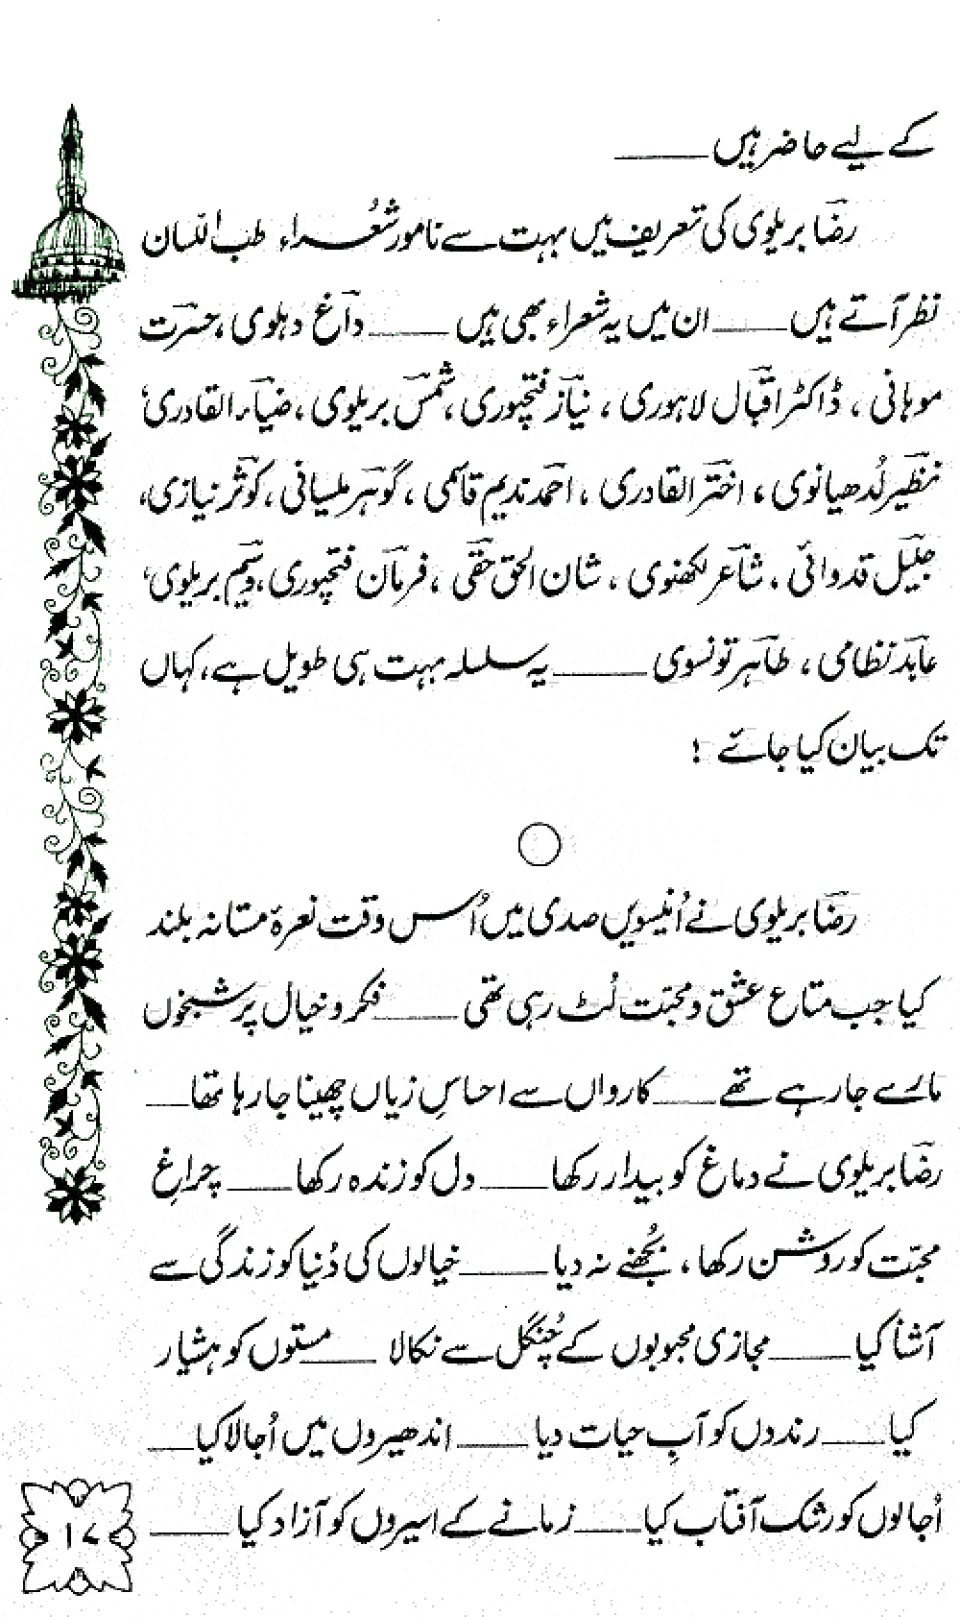 کے لیے حاضر ہیں ____
رضاؔ بریلوی کی تعریف میں بہت سے نامور شعُراء طب اللسان
نظر آتے ہیں ____ ان میں یہ شعراء بھی ہیں ____ داغؔ دہلوی، حسرتؔ
موہانی، ڈاکٹر اقبالؔ لاہوری، نیازؔ فتحپوری، شمسؔ بریلوی، ضیاؔء القادری،
نظیرؔ لُدھیانوی، اخترؔ القادری، احمد ندیم قاسمی، گوہرؔ ملسیانی، کوثرؔ نیازی،
جلیلؔ قدوائی، شاعرؔ لکھنوی، شان الحق حقیؔ، فرمانؔ فتحپوری، وسیمؔ بریلوی،
عابدؔ نظامی، طاہرؔ تونسوی ____ یہ سلسلہ بہت ہی طویل ہے، کہاں
تک بیان کیا جائے !
رضاؔ بریلوی نے اُنیسویں صدی میں اُس وقت نعرۂ مستانہ بلند
کیا جب متاع عشق و محبّت لُٹ رہی تھی ____ فکر و خیال پر شبخوں
مارے جا رہے تھے ____ کارواں سے احساسِ زیاں چھینا جا رہا تھا ____
رضاؔ بریلوی نے دماغ کو بیدار رکھا ____ دل کو زندہ رکھا ____ چراغِ
محبّت کو روشن رکھا، بُجھنے نہ دیا ____ خیالوں کی دُنیا کو زندگی سے
آشنا کیا ____ مجازی محبوبوں کے چُنگل سے نکالا ____ مستوں کو ہشیار
کیا ____ رندوں کو آبِ حیات دیا ____ اندھیروں میں اُجالا کیا ____
اُجالوں کو رشک آفتاب کیا ____ زمانے کے اسیروں کو آزاد کیا ____
۱۷